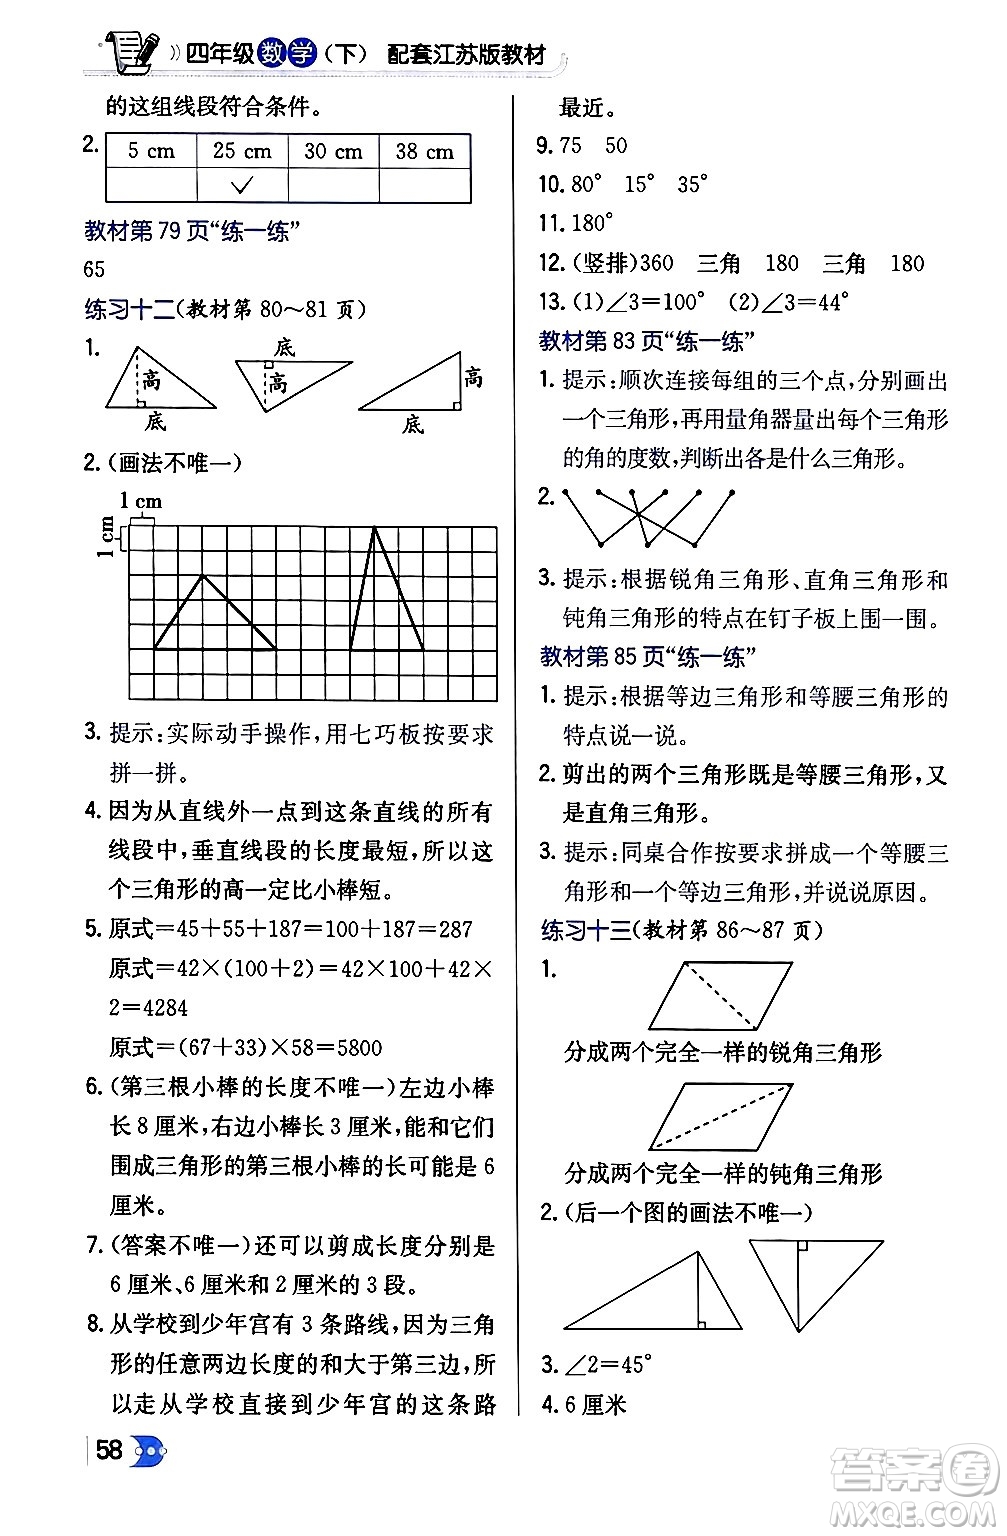 四年级数学(下) 配套江苏版教材
的这组线段符合条件。
2.
5 cm 25 cm 30 cm 38 cm
✓
教材第 79 页“练一练”
65
练习十二(教材第 80～81 页)
1.
高 底
底 高
2.(画法不唯一)
1 cm
1 cm
3. 提示:实际动手操作,用七巧板按要求
拼一拼。
4. 因为从直线外一点到这条直线的所有
线段中,垂直线段的长度最短,所以这
个三角形的高一定比小棒短。
5. 原式=45+55+187=100+187=287
原式=42×(100+2)=42×100+42×
2=4284
原式=(67+33)×58=5800
6.(第三根小棒的长度不唯一)左边小棒
长 8 厘米,右边小棒长 3 厘米,能和它们
围成三角形的第三根小棒的长可能是 6
厘米。
7.(答案不唯一)还可以剪成长度分别是
6 厘米、6 厘米和 2 厘米的 3 段。
8. 从学校到少年宫有 3 条路线,因为三角
形的任意两边长度的和大于第三边,所
以走从学校直接到少年宫的这条路
最近。
9. 75 50
10. 80° 15° 35°
11. 180°
12.(竖排)360 三角 180 三角 180
13.(1)∠3=100° (2)∠3=44°
教材第 83 页“练一练”
1. 提示:顺次连接每组的三个点,分别画出
一个三角形,再用量角器量出每个三角形
的角的度数,判断出各是什么三角形。
2.
3. 提示:根据锐角三角形、直角三角形和
钝角三角形的特点在钉子板上围一围。
教材第 85 页“练一练”
1. 提示:根据等边三角形和等腰三角形的
特点说一说。
2. 剪出的两个三角形既是等腰三角形,又
是直角三角形。
3. 提示:同桌合作按要求拼成一个等腰三
角形和一个等边三角形,并说说原因。
练习十三(教材第 86～87 页)
1.
分成两个完全一样的锐角三角形
分成两个完全一样的钝角三角形
2.(后一个图的画法不唯一)
3. ∠2=45°
4. 6 厘米
58
答案圈
MXQE.COM